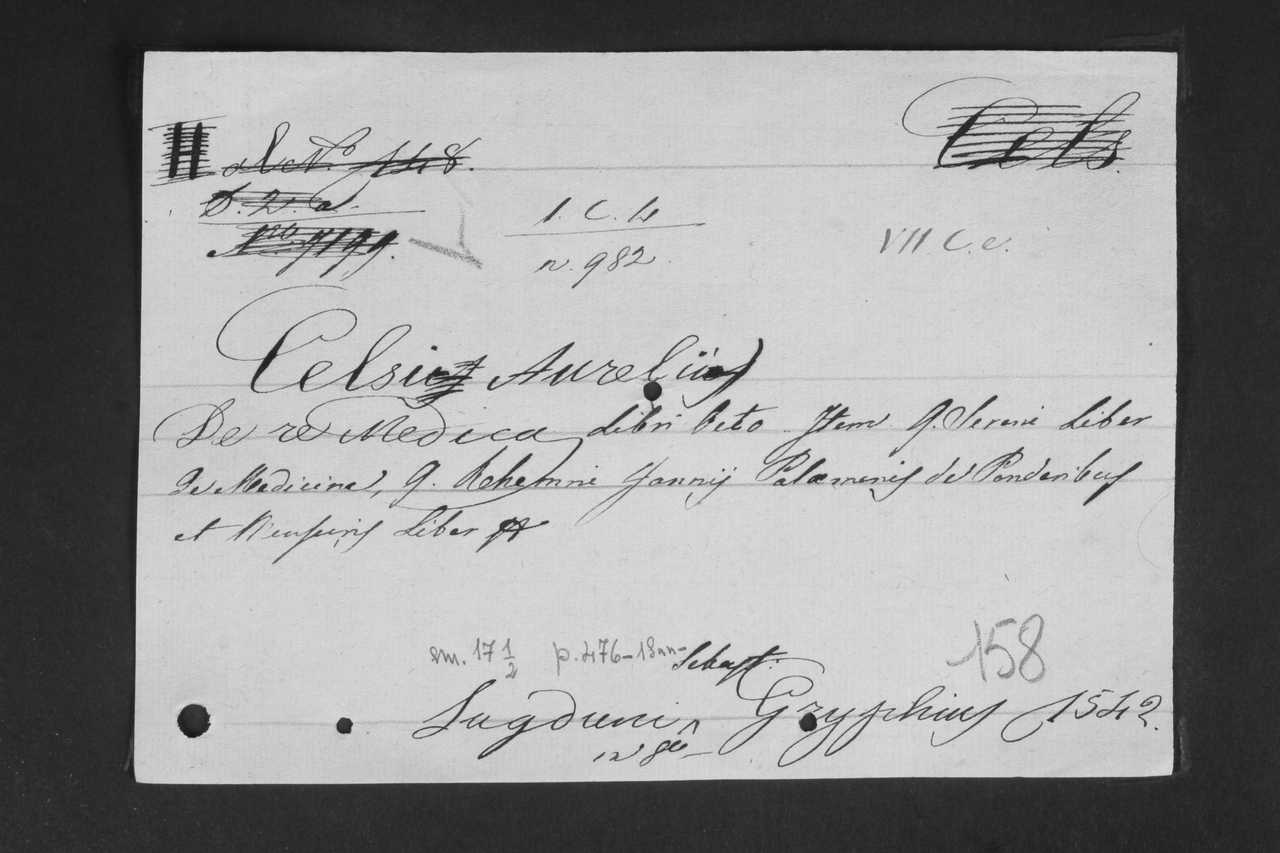 Cels.
N.º 148.
D. 2. a.
Nro 9199.
1. C. 4
n. 982.
VII. C. e.
Celsius Aurelius)
De re Medica libri Octo. Item Q. Sereni Liber
de Medicina, Q. Rhemnii Fannij Palæmonis de Ponderibus
et Mensuris Liber
cm. 17 1/2 p. 476-18nn-
158
Sebast.
Lugduni, Gryphius 1542.
in 8vo